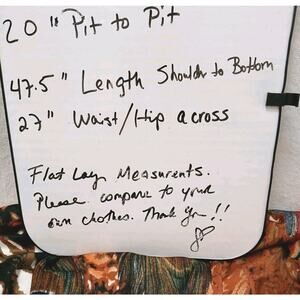 20" Pit to Pit
47.5" Length Shoulder to Bottom
27" Waist/Hip across
Flat Lay Measurents.
Please compare to your
own clothes. Thank You!!